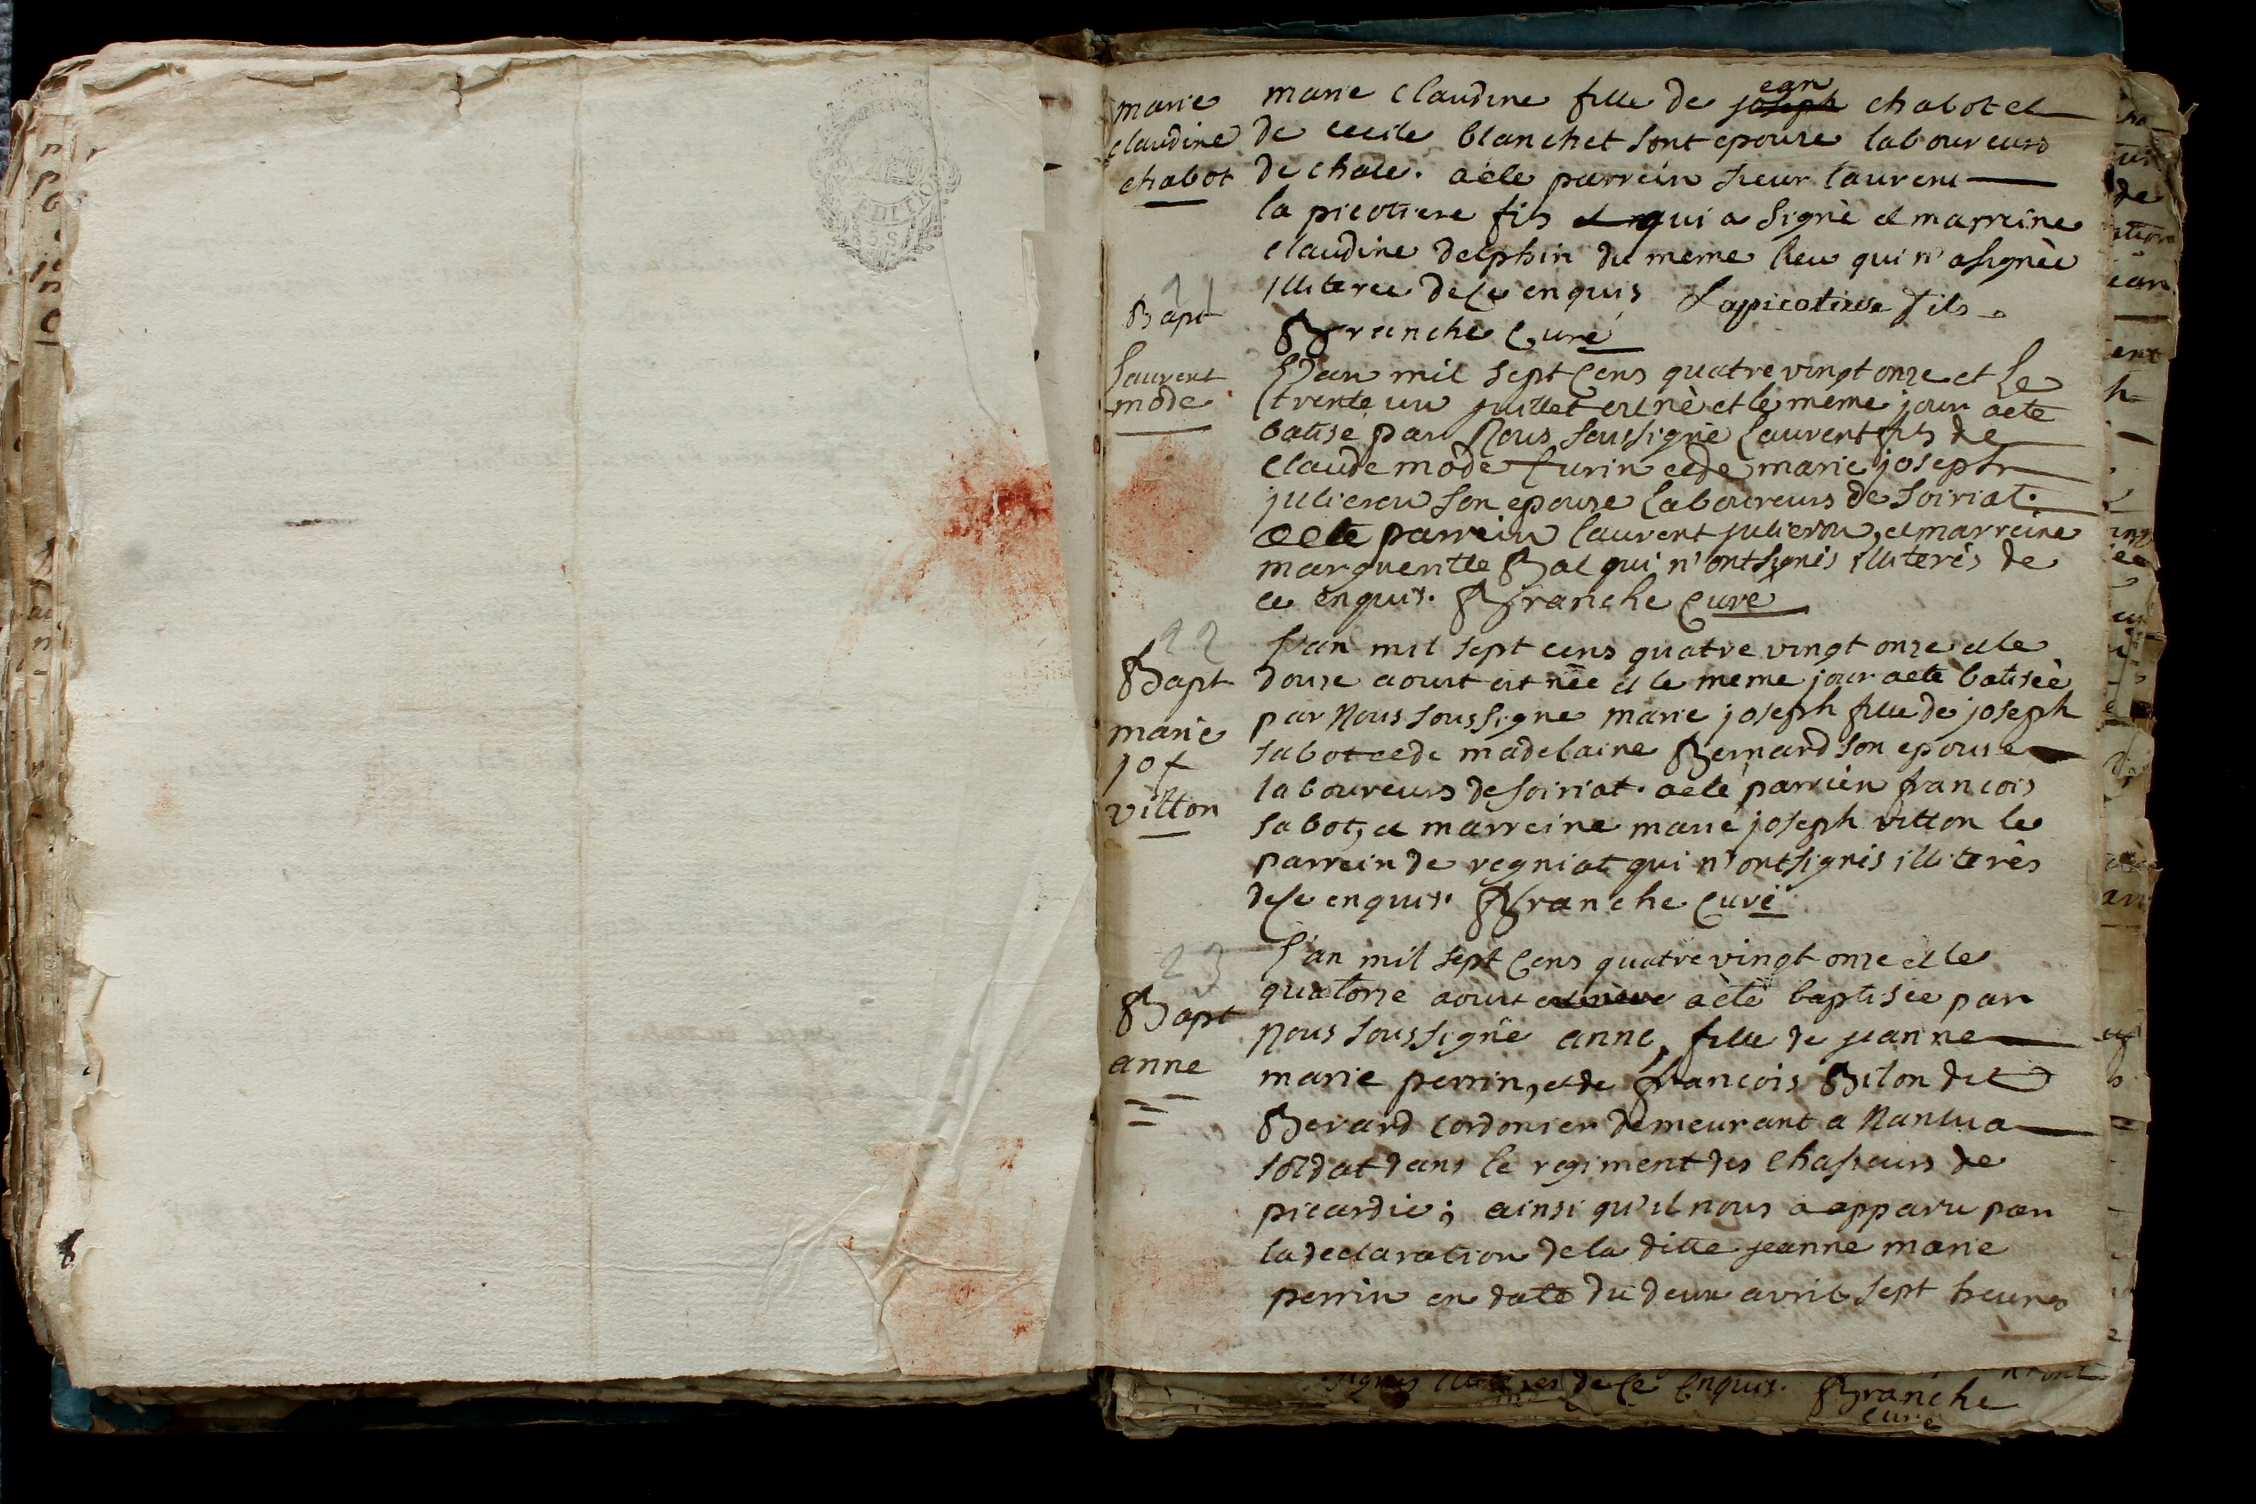 marie
claudine
chabot
marie claudine fille de joseph ean chabot et
de cecile blanchet sont epouse laboureurs
de chate. a ete parrein sieur laurent
la picotiere fils et qui a signè et marreine
claudine delphin du meme lieu qui n'a signèe
illiteree de ce enquis Lapicotiere fils.
Branche Curé
21
Bapt
Laurent
mode
L'an mil sept cens quatre vingt onze et Le
trente un juillet est nè et le meme jour a ete
batise par Nous soussignè Laurent fils de
Claude mode Curin et de marie joseph
julieron son epouse Laboureurs de Soiriat.
a ete parrein laurent julieron, et marreine
margueritte Bal qui n'ont signès illiterès de
ce enquis. Branche Curé
22
Bapt
marie
jos
vitton
L'an mil sept cens quatre vingt onze et le
douze aoust est nèe et le meme jour a ete batisèe
par Nous soussigne marie joseph fille de joseph
sabot et de madelaine Bernard son epouse
laboureurs de soiriat. a eté parrein francois
sabot, et marreine marie joseph vitton le
parrein de regniat qui n'ont signès illiterès
de ce enquis. Branche Curé
23
Bapt
anne
L'an mil sept Cens quatre vingt onze et le
quatorze aoust a étè baptisée par
Nous soussignè anne, fille de jeanne
marie perrin, et de francois Bilon dit
Berard cordonier demeurant a Nantua
soldat dans le regiment des Chasseurs de
picardie; ainsi qu'il nous a apparu par
la declaration de la ditte jeanne marie
perrin en date du deux avril sept heures
signès illiteres de Ce Enquis. Branche
curé
n'ont